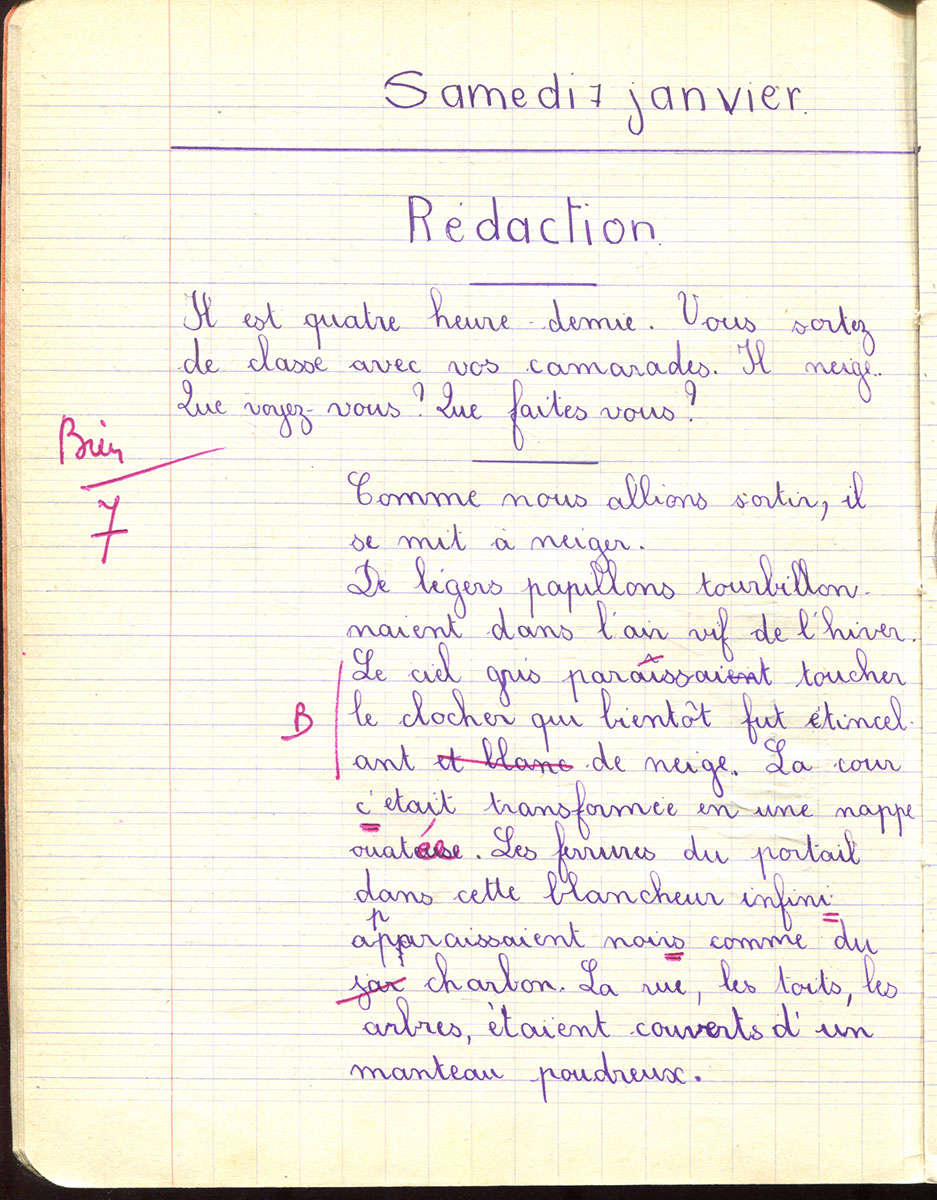 Samedi 7 janvier.
Rédaction
Il est quatre heure demie. Vous sortez
de classe avec vos camarades. Il neige.
Que voyez-vous? Que faites vous?
Bien
7
Comme nous allions sortir, il
se mit à neiger.
De légers papillons tourbillon-
naient dans l'air vif de l'hiver.
Le ciel gris paraîssaient toucher
B
le clocher qui bientôt fut étincel-
ant et blanc de neige. La cour
c'était transformée en une nappe
ouatée. Les ferrures du portail
dans cette blancheur infini
p
apparaissaient noirs comme du
charbon. La rue, les toits, les
arbres, étaient couverts d'un
manteau poudreux.